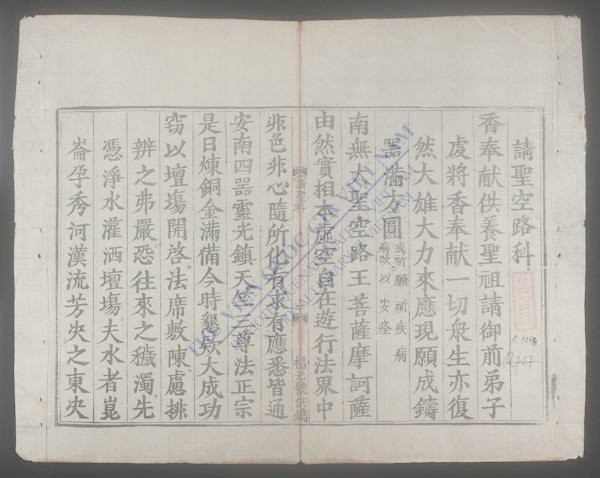 請聖空路科
香奉献供養聖祖請御前弟子
虔將香奉献一切衆生亦復
然大雄大力來應現願成鑄
器滿方圓 或祈願祈疾病
病改以安痊
南無大聖空路王菩薩摩訶薩
由然實相本虚空自在遊行法界中
非色非心隨所化有求有應悉皆通
安南四器靈光鎮天竺三尊法正宗
是日煉銅金滿備今時懇欵大成功
窃以壇塲開啓法席敷陳慮排
辨之弗嚴恐往來之穢濁先
憑淨水灌洒壇塲夫水者崑
崙孕秀河漢流芳央之東央
請聖科
R.1248
THƯ VIỆN QUỐC GIA VIỆT NAM
NATIONAL LIBRARY OF VIETNAM